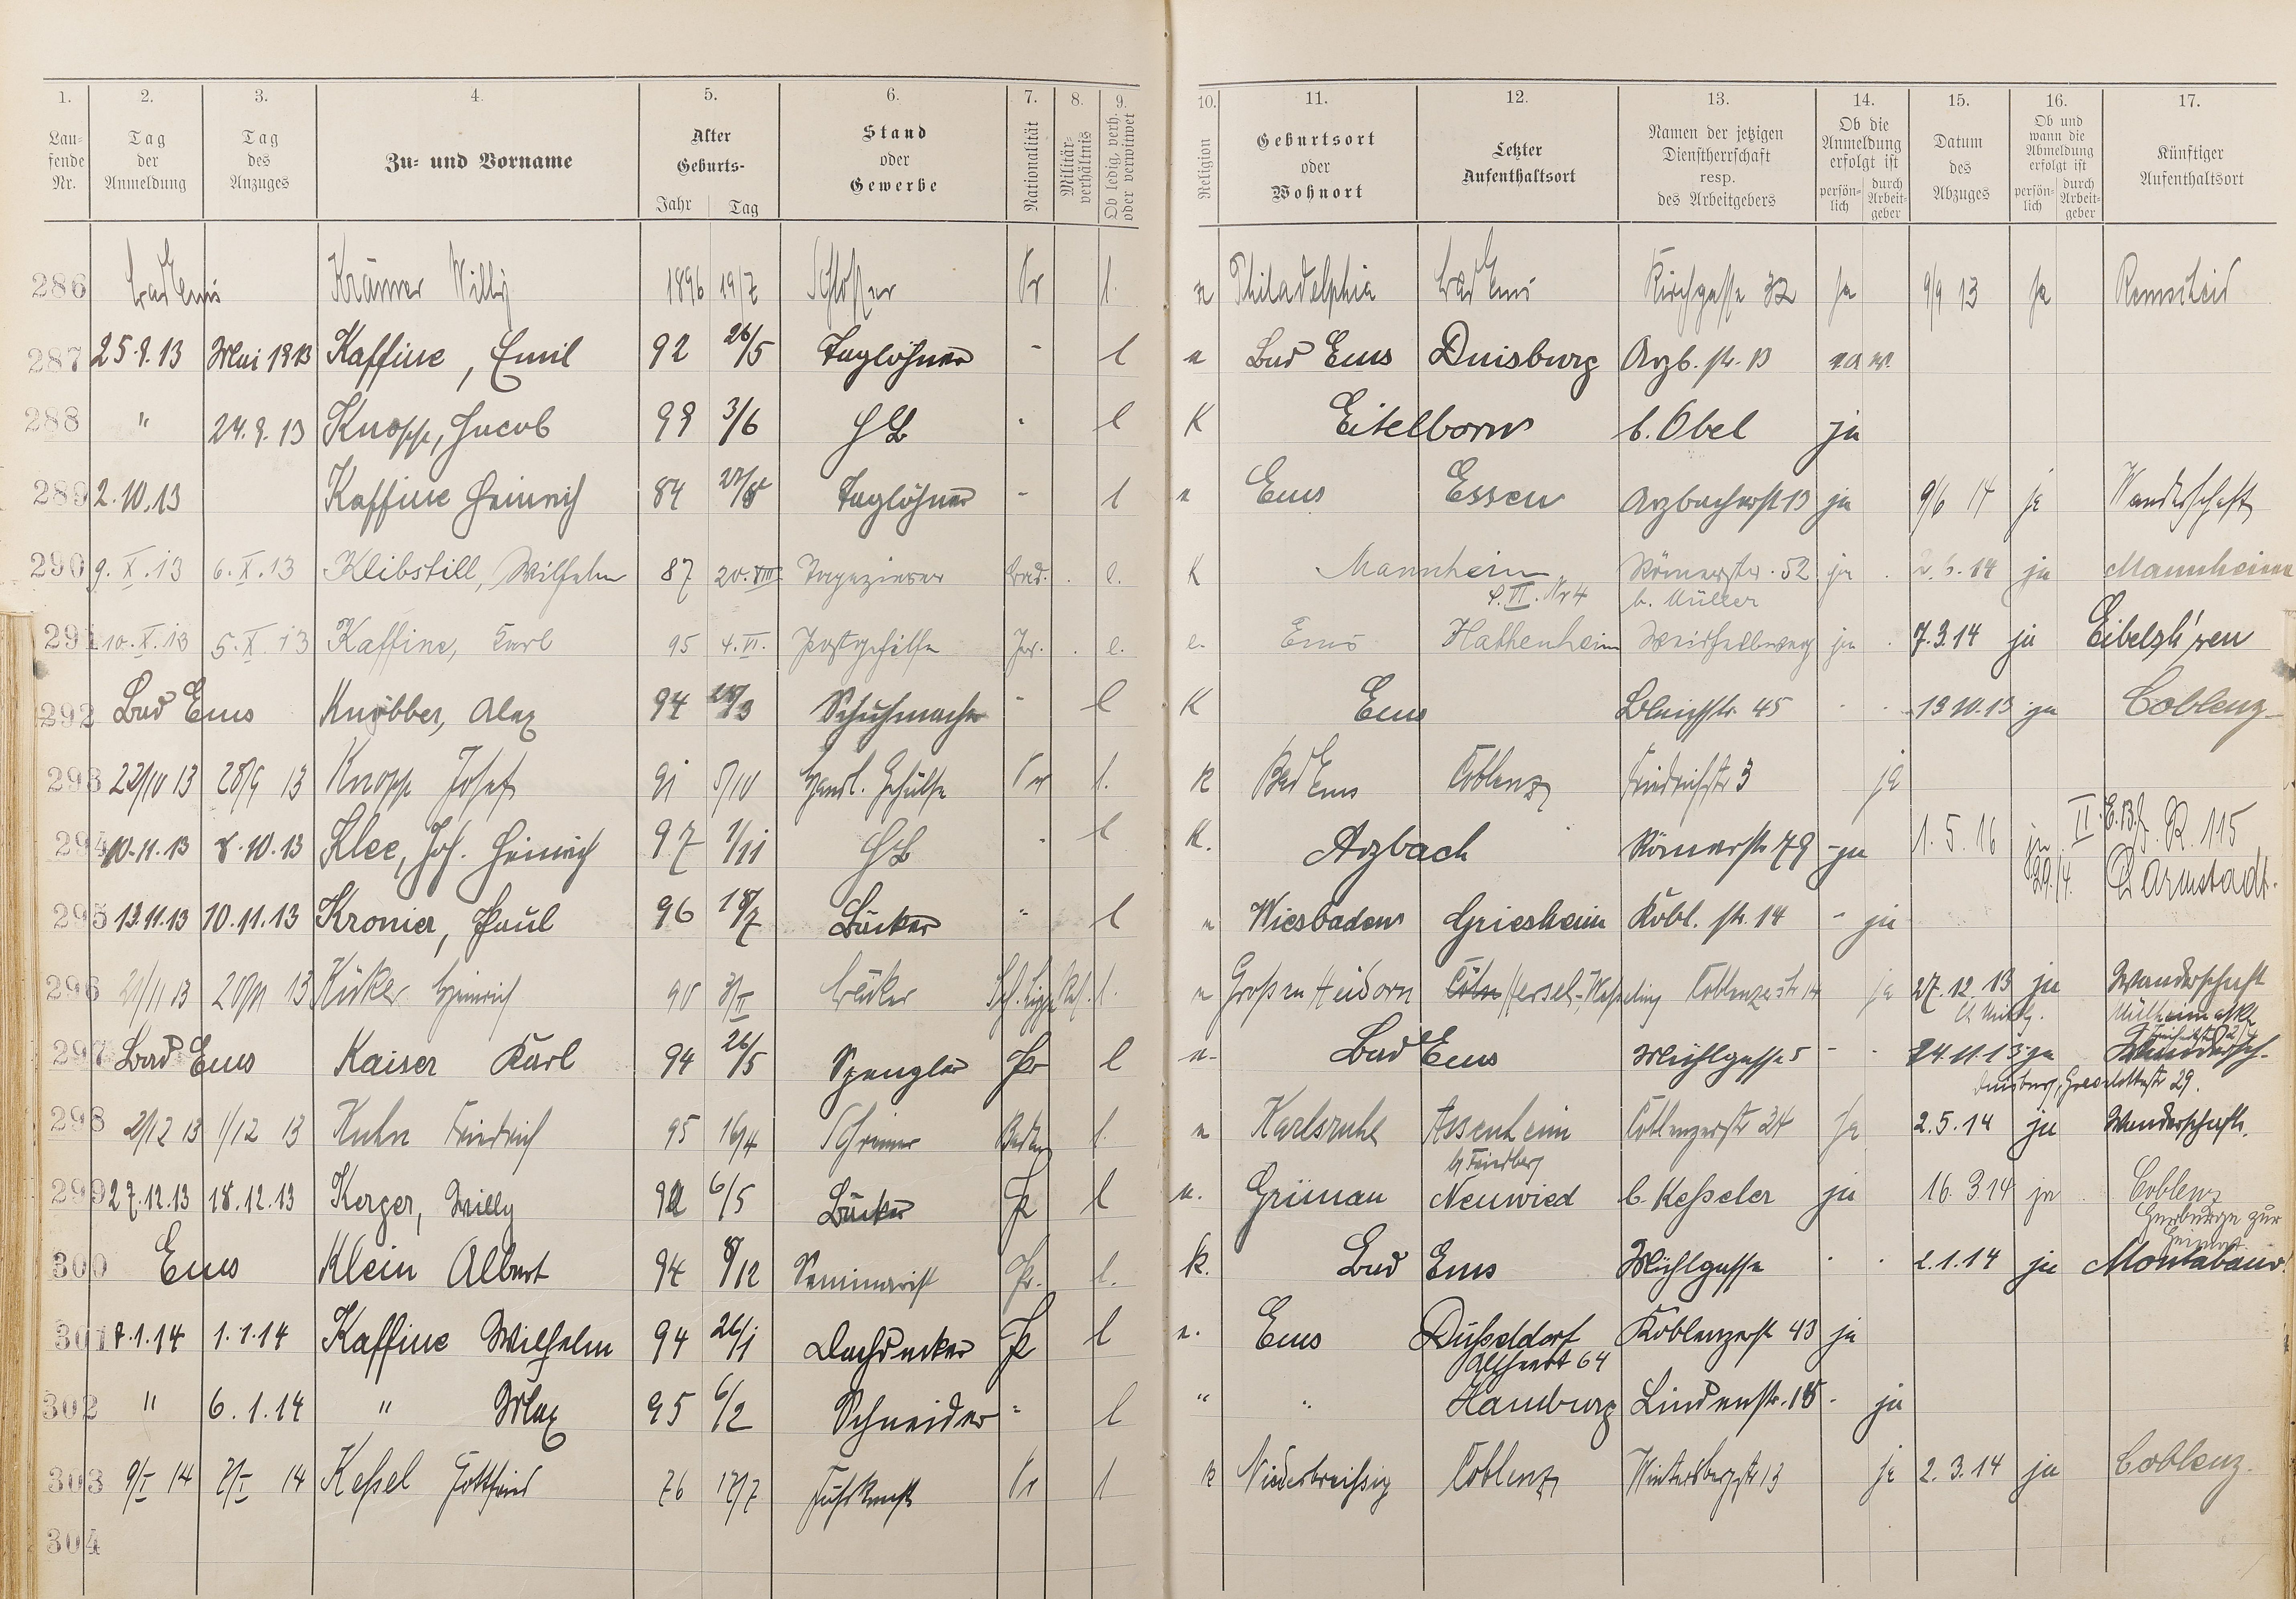 1. 2. 3. 4. 5. 6. 7. 8. 9. 10. 11. 12. 13. 14. 15. 16. 17.
Lau-
fende
Nr.
Tag
der
Anmeldung
Tag
des
Anzuges
Zu- und Vorname
Alter
Geburts-
Jahr Tag
Stand
oder
Gewerbe
Nationalität
Militär-
verhältnis
Ob ledig, verh.
oder verwitwet
Religion
Geburtsort
oder
Wohnort
Letzter
Aufenthaltsort
Namen der jetzigen
Dienstherrschaft
resp.
des Arbeitgebers
Ob die
Anmeldung
erfolgt ist
persön-
lich
durch
Arbeit-
geber
Datum
des
Abzuges
Ob und
wann die
Abmeldung
erfolgt ist
persön-
lich
durch
Arbeit-
geber
Künftiger
Aufenthaltsort
286 Bad Ems Krämer Willy 1896 19/7 Schlosser Pr l. Philadelphia Bad Ems Kirchgasse 32 ja 9/9 13 ja Remscheid
287 25.9.13 Mai 1913 Kaffine, Emil 92 26/5 Taglöhner - l Bad Ems Duisburg Arzb. str. 13
288 " 24.9.13 Knopp, Jacob 99 3/6 l K Eitelborn b. Obel ja
289 2.10.13 Kaffine Heinrich 84 Taglöhner - l Ems Essen Arzbacherst 13 ja 9/6 14 ja Wanderschaft
290 9.X.13 6.X.13 Kleibstill, Wilhelm 87 20.VIII Tapezierer Bad. l. K Mannheim Römerstr. 52 ja 2.6.14 ja Mannheim
Nr 4 b. Müller
291 10.X.13 5.X.13 Kaffine, Karl 95 4.VI. Postgehilfe Pr. l. e. Ems Hattenheim ja 7.3.14 ja
292 Bad Ems Knöbber, Alex 94 Schuhmacher - l K Ems Bleichstr. 45 13.10.13 ja Coblenz
293 22/10 13 28/9 13 Knopp Josef 91 5/10 Handl. Gehülfe Pr l. k Bad Ems Coblenz Friedrichstr 3 ja
294 10.11.13 8.10.13 Klee, Joh. Heinrich 97 1/11 l K. Arzbach Römerstr 79 - ja 1.5.16 ja II. E. B. J. R. 115
29./4. Darmstadt.
295 13.11.13 10.11.13 Kronier, Paul 96 18/7 Bäcker " l Wiesbaden Griesheim Kobl. str. 14 - ja
296 21/11 13 20/11 13 Küker Heinrich 90 Bäcker Sch. Lippe Ref. l. Großen Heidorn Cöln Hersel-Wesseling Coblenzerstr 14 ja 27.12.13 ja Wanderschaft
297 Bad Ems Kaiser Karl 94 26/5 Spengler Pr l Bad Ems Mühlgasse 5 - 24.11.13 ja
Duisburg, 29.
298 2/12 13 1/12 13 Kuhn Friedrich 95 16/4 Schreiner Baden l. Karlsruhe Assenheim Coblenzerstr 24 ja 2.5.14 ja Wanderschaft.
b/ Friedberg
299 27.12.13 18.12.13 Kerger, Willy 6/5 Bäcker Pr l Grünau Neuwied b. Keßeler ja 16.3.14 ja Coblenz
Herberge zur
Heimat.
300 Ems Klein Albert 94 8/12 Seminarist Pr. l. k. Bad Ems Mühlgasse 2.1.14 ja Montabaur
301 7.1.14 1.1.14 Kaffine Wilhelm 94 26/1 Dachdecker Pr l Ems Düsseldorf Koblenzerst 43 ja
64
302 " 6.1.14 " Max 95 6/2 Schneider " l " " Hamburg Lindenstr. 18 - ja
303 9/I 14 7/I 14 Keßel Gottfried 76 17/7 Fuhrknecht Pr l k Niederbreisig Coblenz Wintersbergstr 13 ja 2.3.14 ja Coblenz.
304